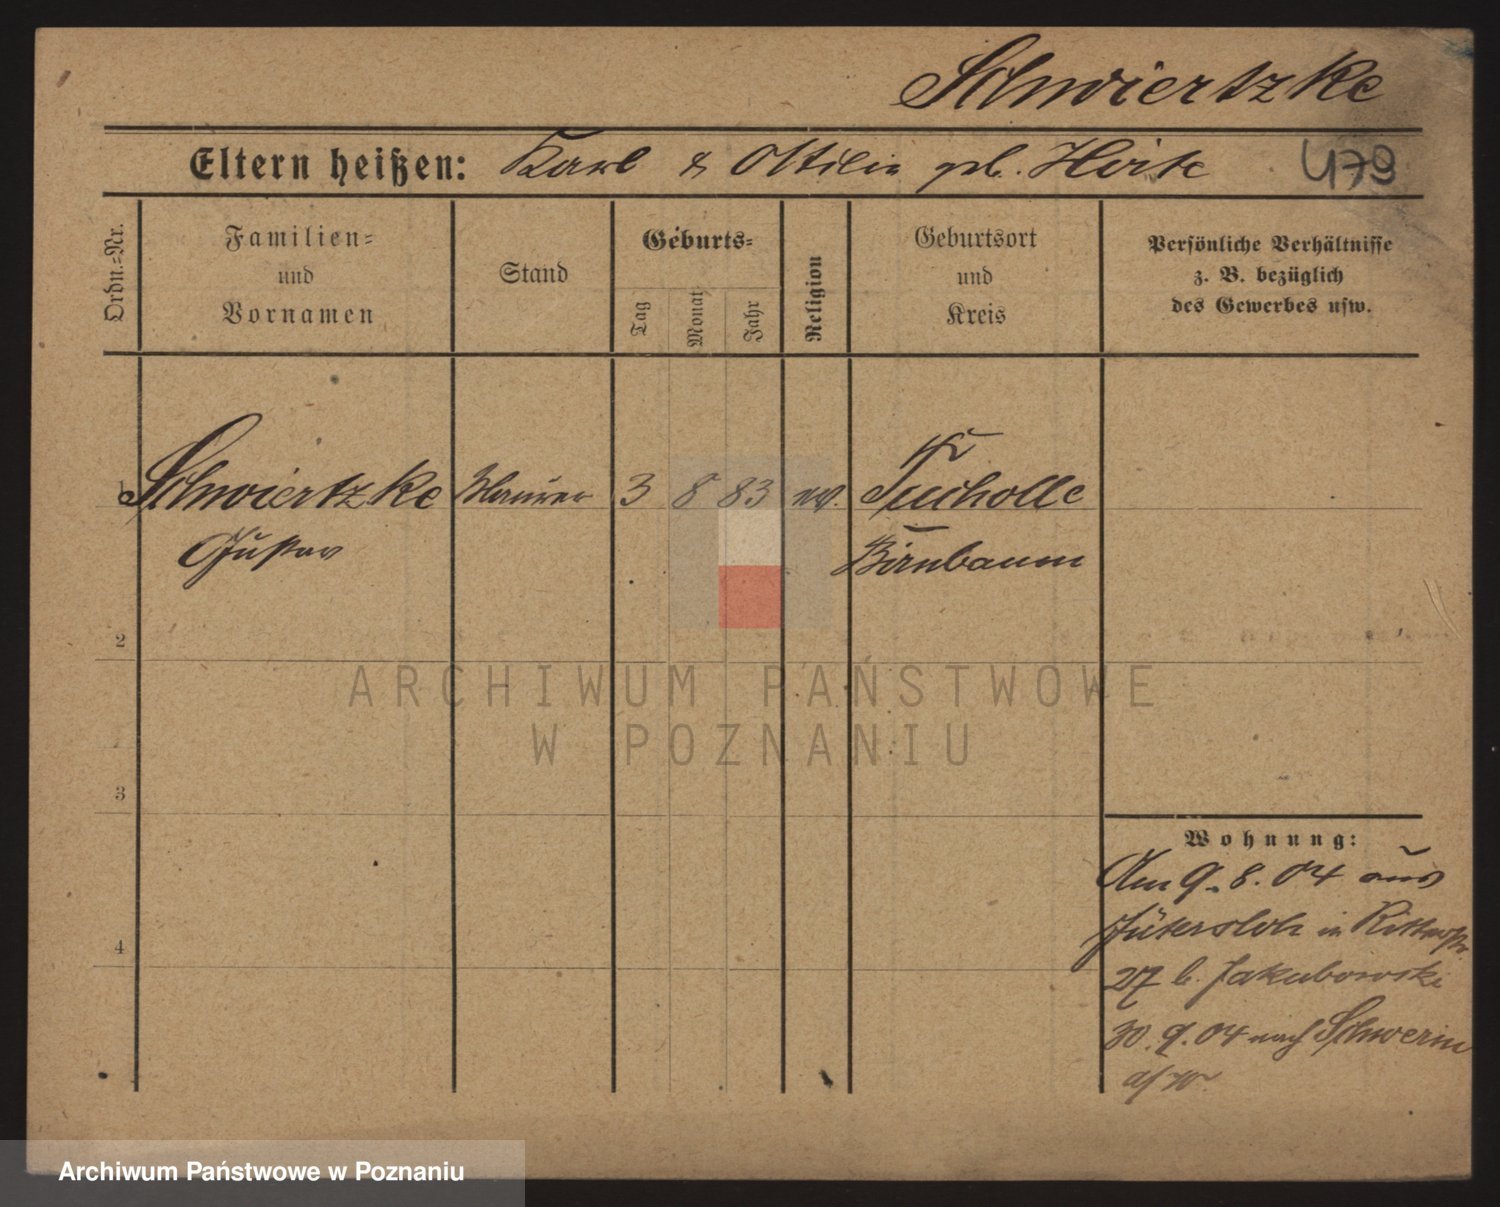 Schwiertzke
Eltern heißen: Karl & Ottilie geb. Heise 479
Ordn.-Nr.
Familien-
und
Vornamen
Stand
Geburts-
Tag
Monat
Jahr
Religion
Geburtsort
und
Kreis
Persönliche Verhältnisse
z. B. bezüglich
des Gewerbes usw.
1 Schwiertzke Maurer 3 8 83 ev. Tucholle
Gustav Birnbaum
2
3
4
Wohnung:
Am 9.8.04 aus
in Ritterstr.
27 b. Jakubowski
30.9.04 nach Schwerin
a/W.
ARCHIWUM PAŃSTWOWE
W POZNANIU
Archiwum Państwowe w Poznaniu